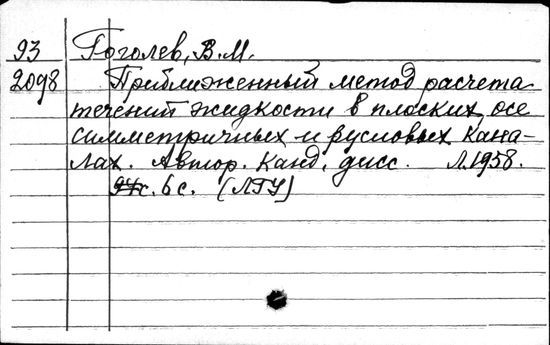 93 Гоголев, В.М.
2098 Приближенный метод расчета
течений жидкости в плоских, осе
симметричных и русловых кана-
лах. Автор. канд. дисс. Л. 1958.
с. 6 с. (ЛГУ)